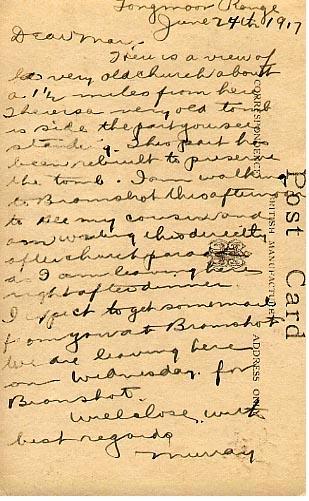 Longmoor Range
June 24th 1917
Dear Mar.
Here is a view of
a very old church about
a 1½ miles from here
Theres a very old tomb
in side the part you see
standing. This part has
been rebuilt to preserve
the tomb. I am walking
to Bramshot this afternoon
to see my cousin and
am writing this directly
after church parade
as I am leaving here
right after dinner.
I expect to get some mail
from you at Bramshot
We are leaving here
on Wednesday for
Bramshot.
Well close with
best regards
Murray
Post Card
CORRESPONDENCE
BRITISH MANUFACTURE
ADDRESS ON